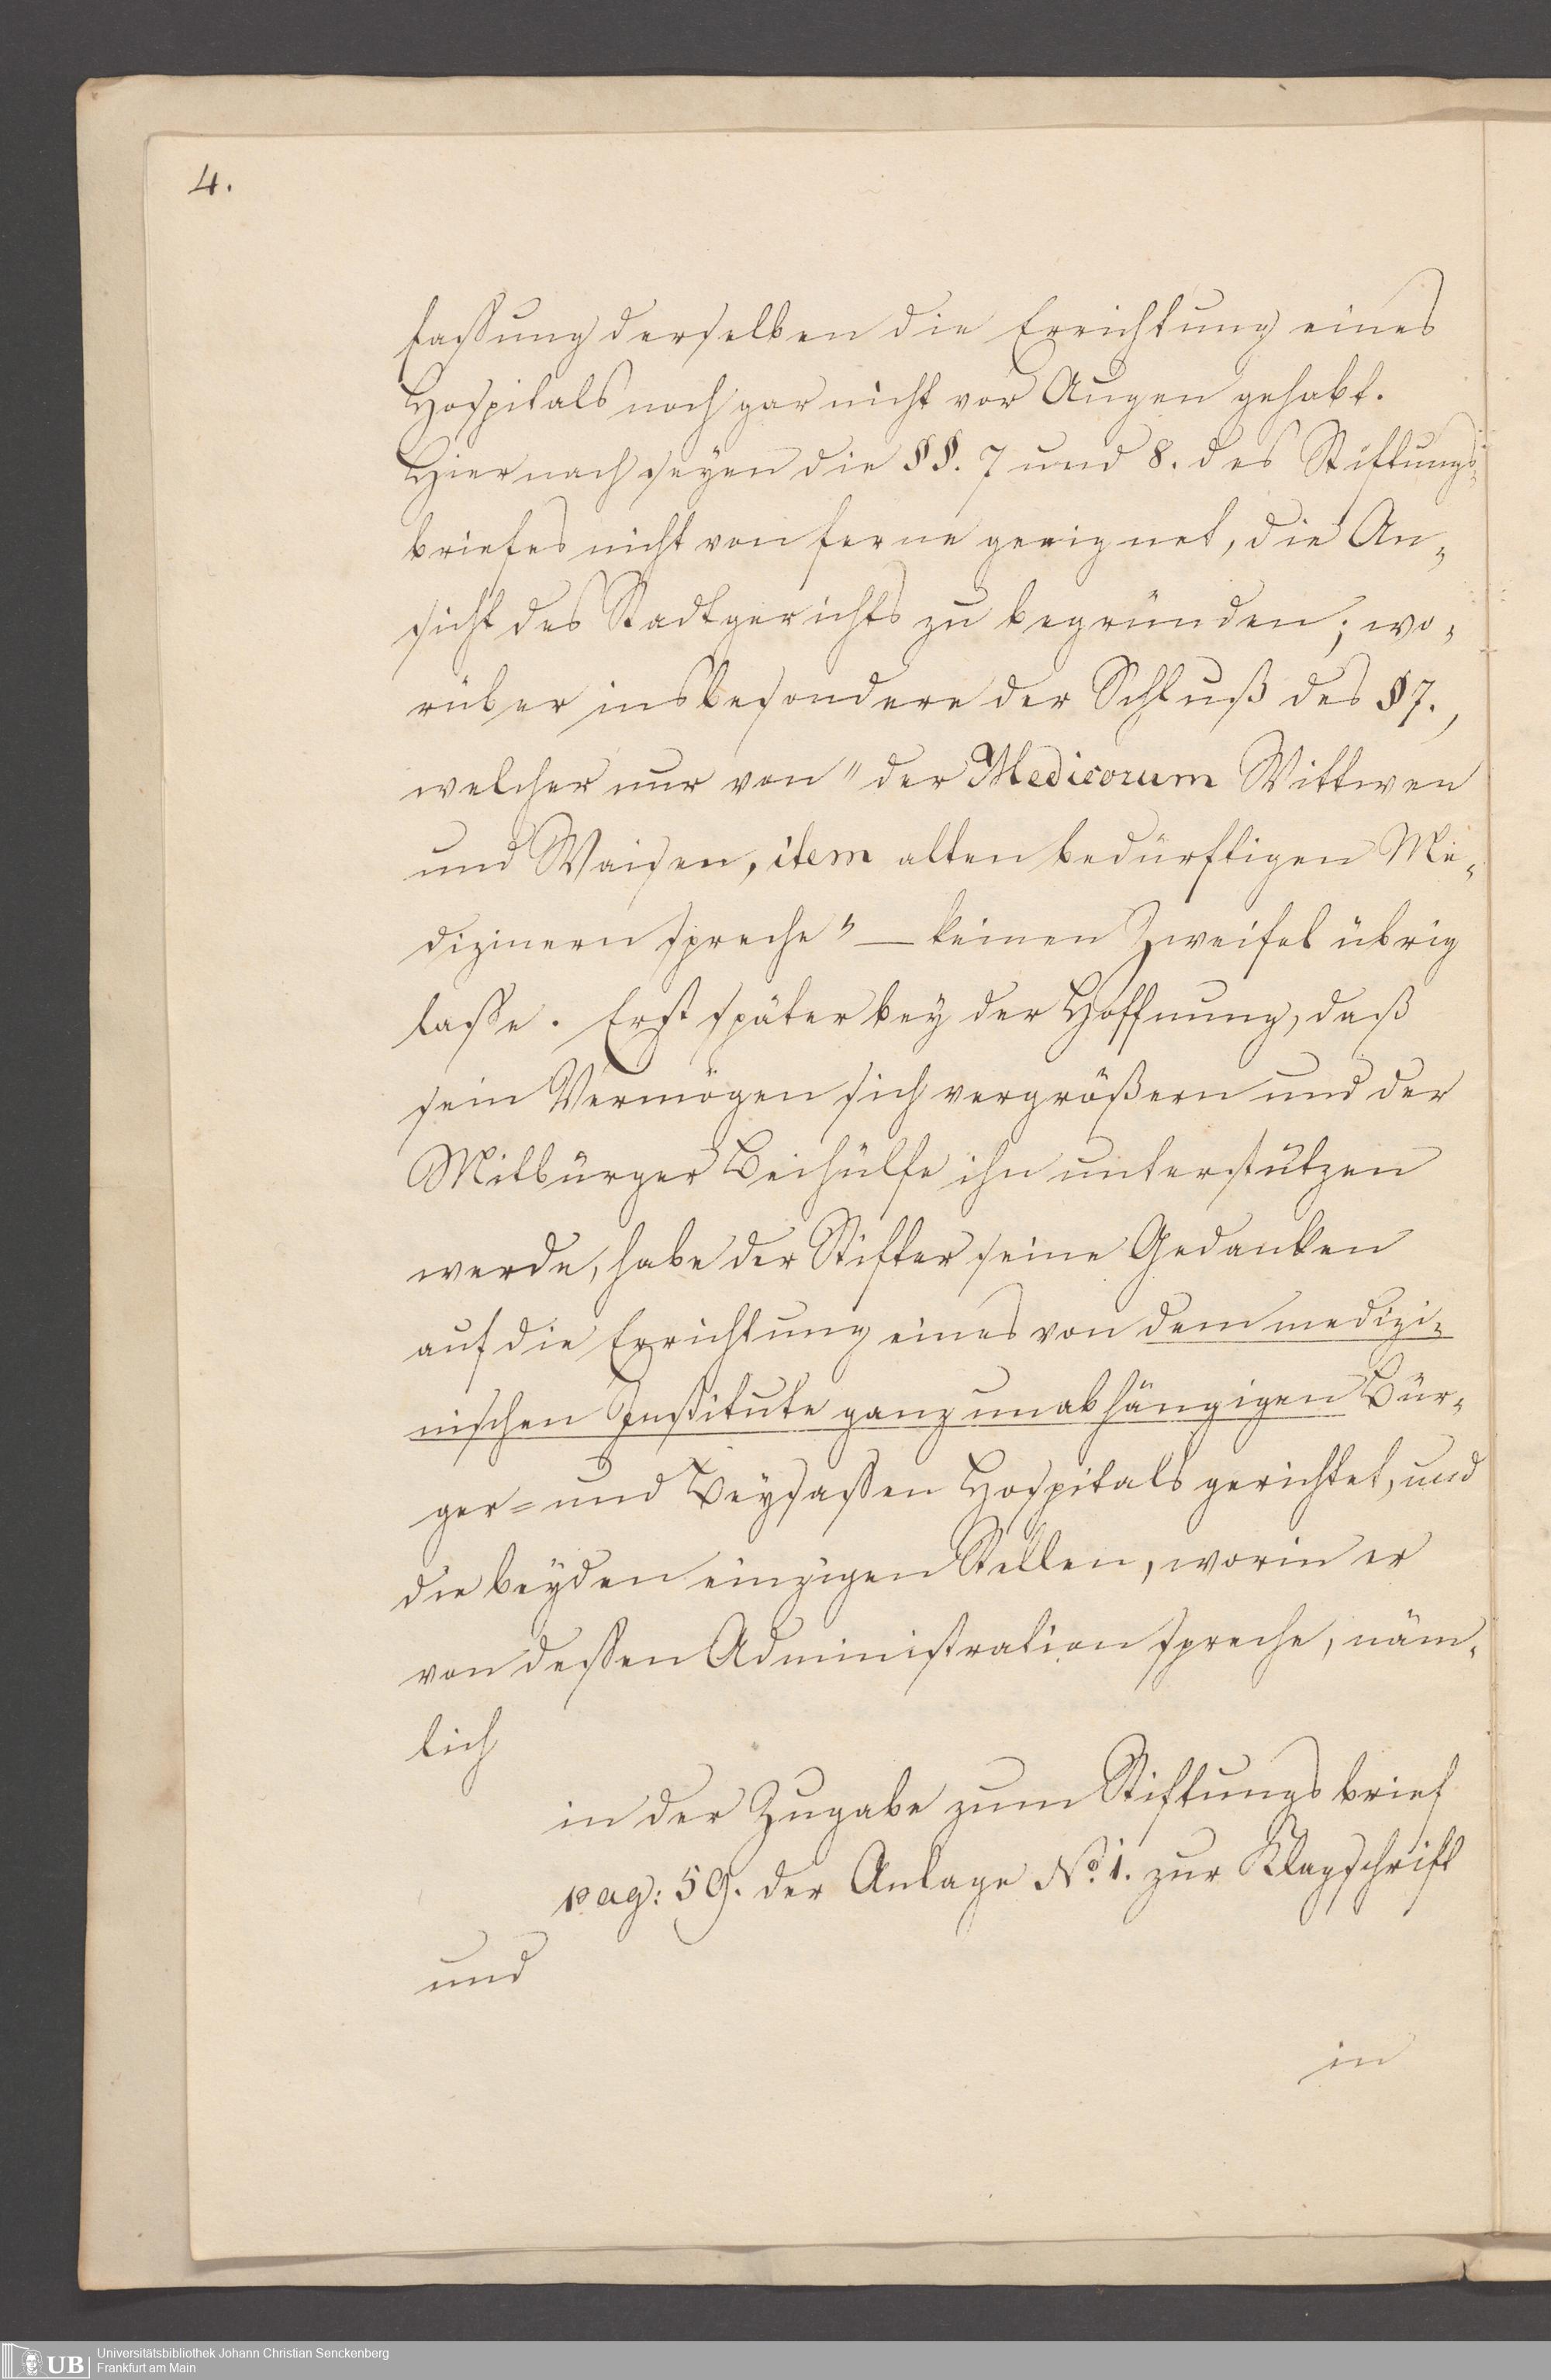 4.
fassung derselben die Errichtung eines
Hospitals noch gar nicht vor Augen gehabt.
Hiernach seyen die §§. 7 und 8. des Stiftungs-
briefes nicht von ferne geeignet, die An-
sicht des Stadtgerichts zu begründen; wo-
rüber insbesondere der Schluß des § 7.,
welcher nur von "der Medicorum Wittwen
und Waisen, item alten bedürftigen Me-
dizinern spreche" — keinen Zweifel übrig
lasse. Erst später bey der Hoffnung, daß
sein Vermögen sich vergrößern und der
Mitbürger Beihülfe ihn unterstützen
werde, habe der Stifter seine Gedanken
auf die Errichtung eines von dem medizi-
nischen Institute ganz unabhängigen Bür-
ger= und Beysassen Hospitals gerichtet, und
die beyden einzigen Stellen, worin er
von dessen Administration spreche, näm-
lich
in der Zugabe zum Stiftungsbrief
pag: 59. der Anlage No. 1. zur Klagschrift
und
in
UB
Universitätsbibliothek Johann Christian Senckenberg
Frankfurt am Main